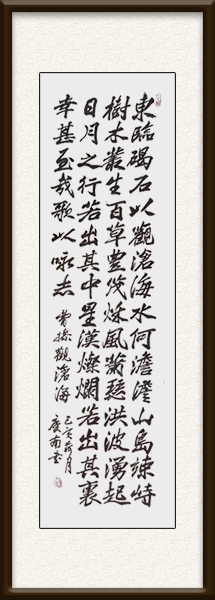 東臨碣石以觀滄海水何澹澹山島竦峙
樹木叢生百草豐茂秋風蕭瑟洪波湧起
日月之行若出其中星漢燦爛若出其裏
幸甚至哉歌以咏志 曹操觀滄海
己亥荷月
南書